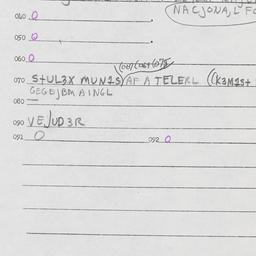 NACJONA,L FO
040 O
050 O
060 O
070 STUL3X MUN1S) AF A TELEKL ((K3M1S+
GEGEJBM AINGL
080 —
090 VEJUD3R
091 O 092 O